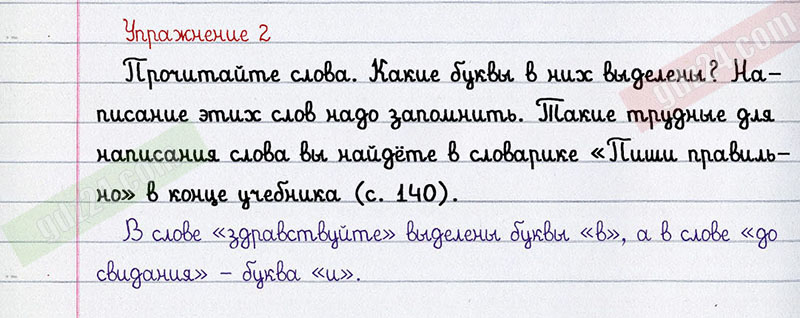 Упражнение 2
Прочитайте слова. Какие буквы в них выделены? На-
писание этих слов надо запомнить. Такие трудные для
написания слова вы найдёте в словарике «Пиши правиль-
но» в конце учебника (с. 140).
В слове «здравствуйте» выделены буквы «в», а в слове «до
свидания» – буква «и».
gdz24.com
gdz24.com